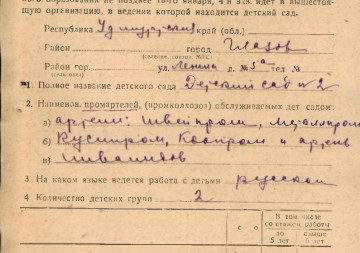 не позднее 10-го января, 4 й экз. идет в вышестоя-
щую организацию, в ведении которой находится детский сад.
Республика Удмуртская край (обл.)
Район город Глазов
Район гор. ул. Ленина д. № 5а тел. №
1. Полное название детского сада Детский сад № 2
2. Наименов. промартелей, (промколхозов) обслуживаемых дет. садом:
а) артели: Швейпром, Металлпром
б) Кустпром, Коопром и артель
в) инвалидов
3 На каком языке ведется работа с детьми русском
4 Количество детских групп 2
В том числе
со стажем работы
до 5 лет
свыше 5 лет